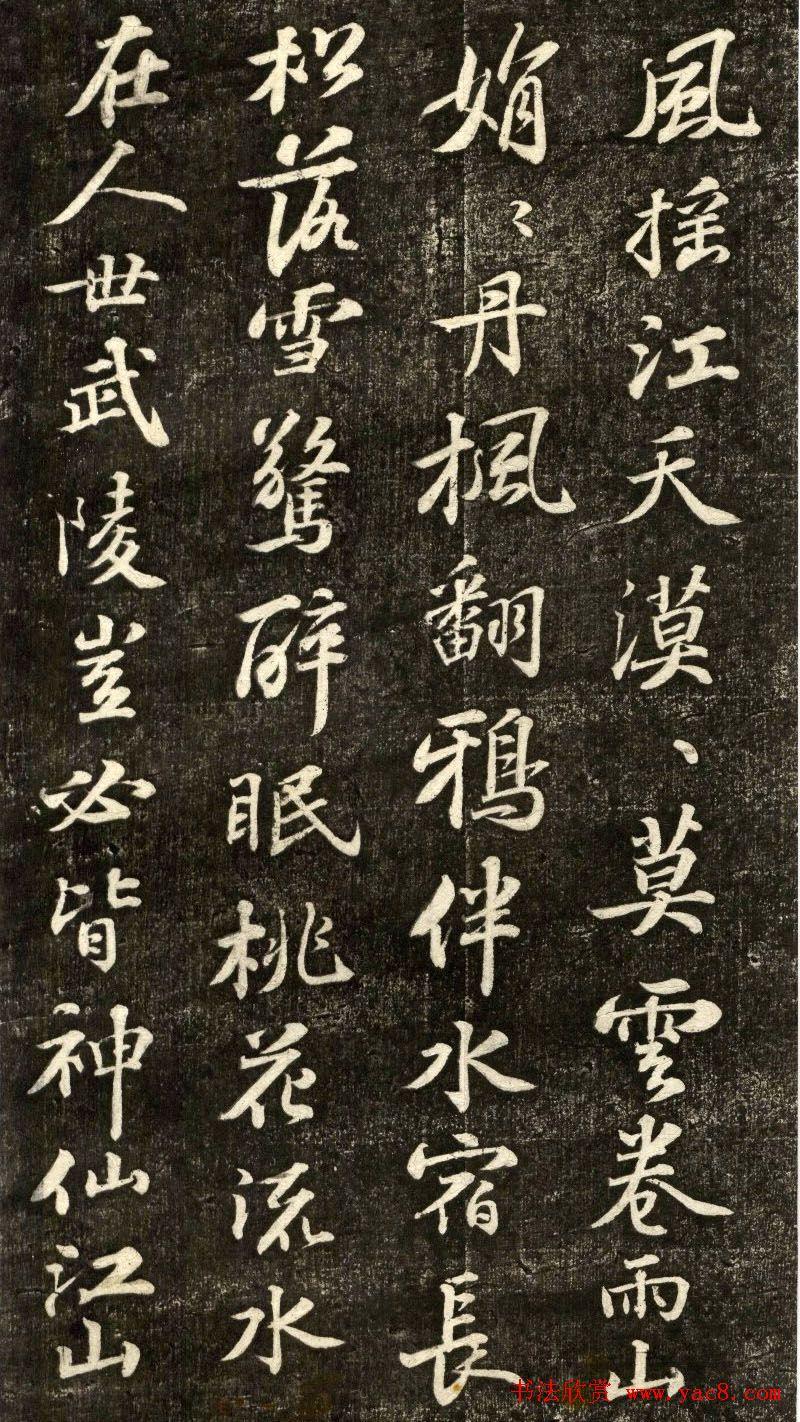 風揺江天漠、莫雲卷雨山
娟〻丹楓翻鴉伴水宿長
松落雪驚醉眠桃花流水
在人世武陵豈必皆神仙江山
书法欣赏 www.yac8.com